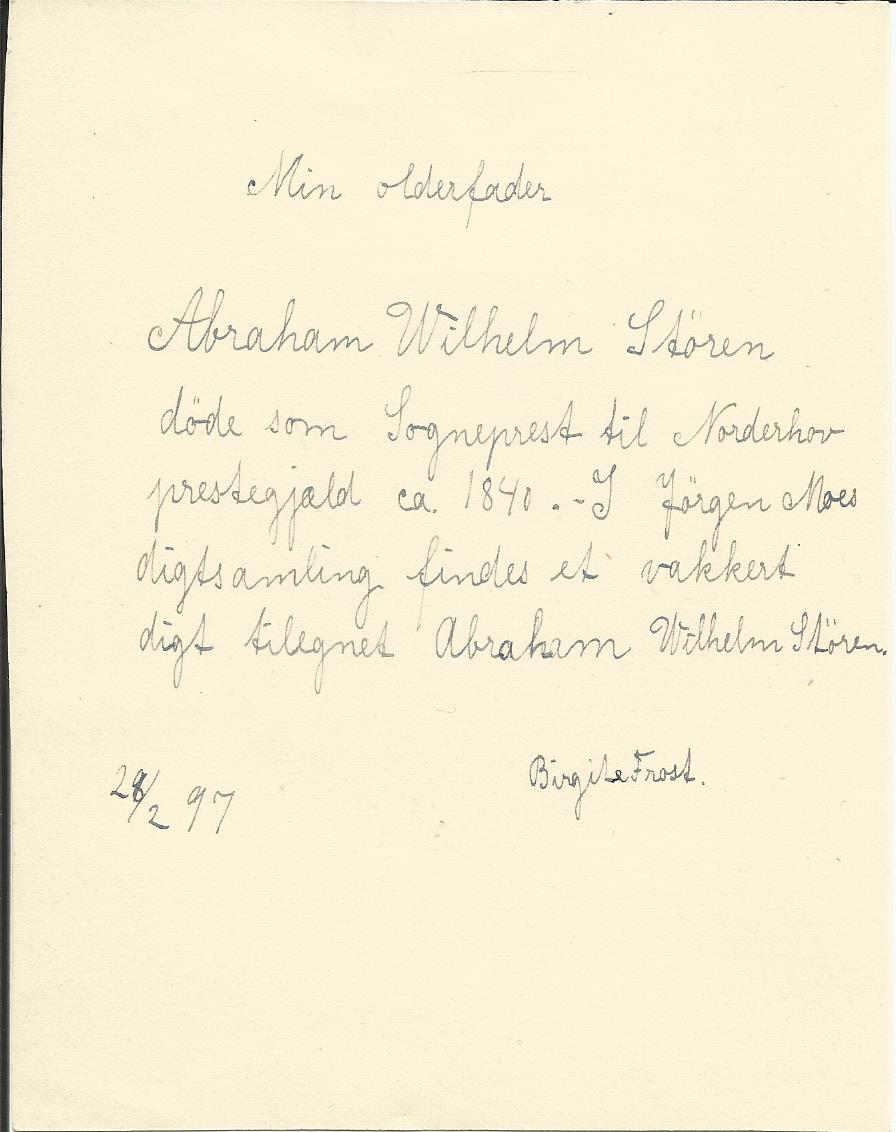 Min olderfader
Abraham Wilhelm Stören
döde som Sogneprest til Norderhov
prestegjæld ca. 1840. - I Jörgen Moes
digtsamling findes et vakkert
digt tilegnet Abraham Wilhelm Stören.
Birgite Frost.
28/2 97